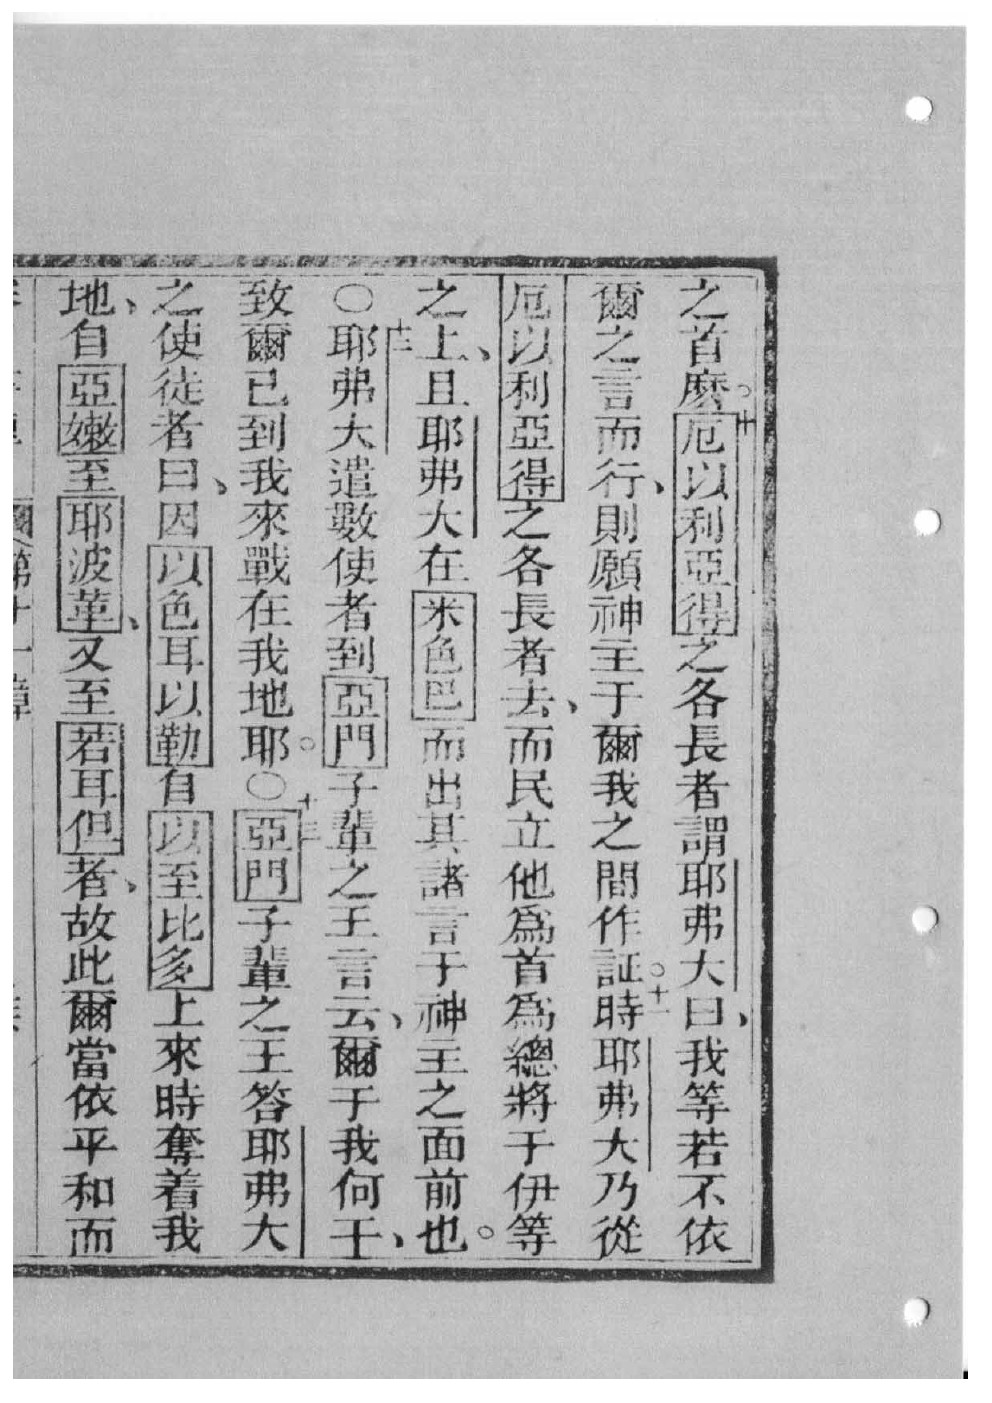 之首麽。十厄以利亞得之各長者謂耶弗大曰、我等若不依
爾之言而行、則願神主于爾我之間作証時。十一耶弗大乃從
厄以利亞得之各長者去、而民立他爲首爲總將于伊等
之上、且耶弗大在米色巴而出其諸言于神主之面前也。
○十二耶弗大遣數使者到亞門子輩之王言云、爾于我何干、
致爾已到我來戰在我地耶。○十三亞門子輩之王答耶弗大
之使徒者曰、因以色耳以勒自以至比多上來時奪着我
地、自亞嫩至耶波革、又至若耳但者、故此爾當依平和而
第十一章